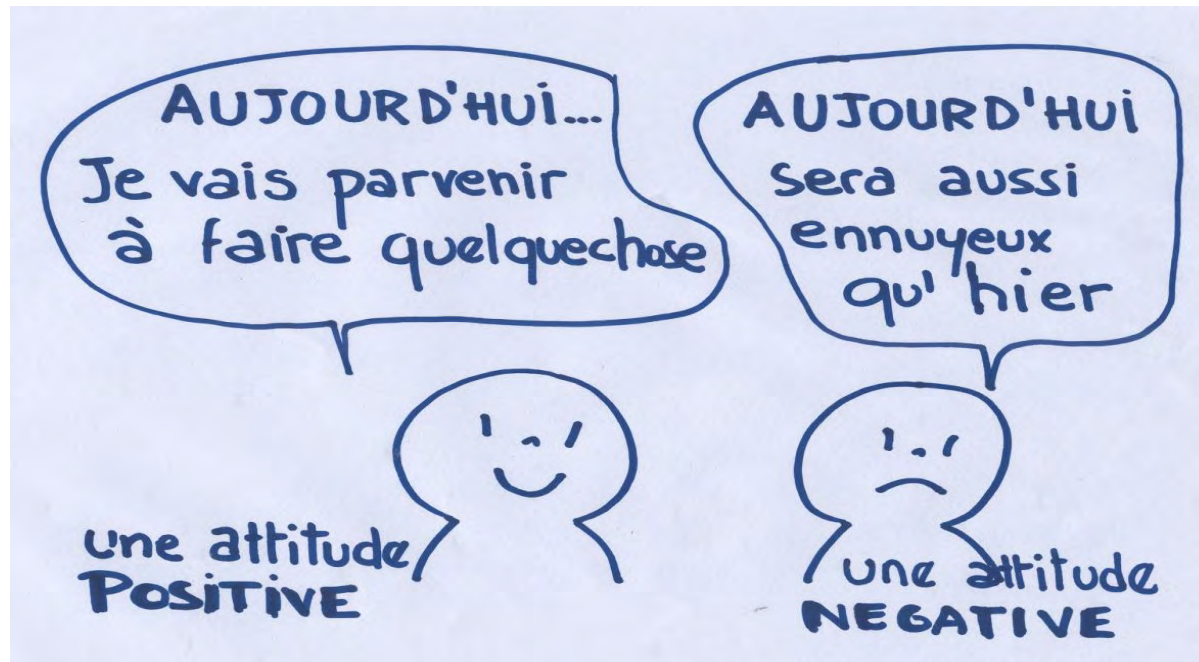 AUJOURD'HUI...
Je vais parvenir
à faire quelquechose
AUJOURD'HUI
sera aussi
ennuyeux
qu'hier
une attitude
POSITIVE
une attitude
NEGATIVE